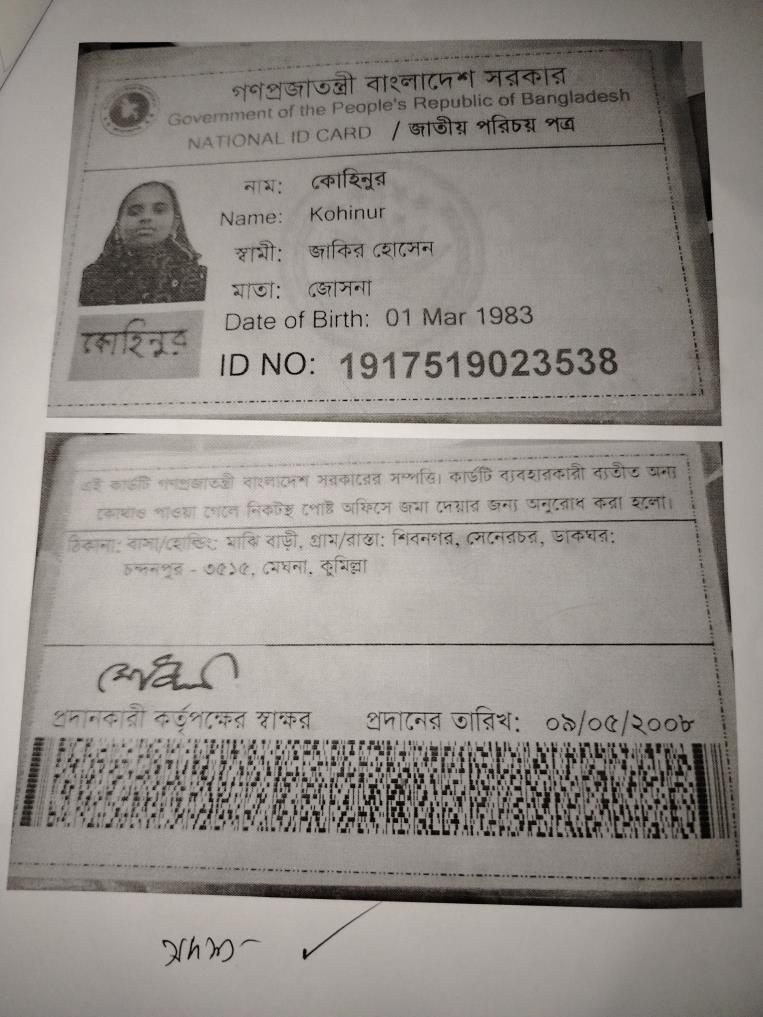 গণপ্রজাতন্ত্রী বাংলাদেশ সরকার
Government of the People's Republic of Bangladesh
NATIONAL ID CARD / জাতীয় পরিচয় পত্র
নাম: কোহিনুর
Name: Kohinur
স্বামী: জাকির হোসেন
মাতা: জোসনা
Date of Birth: 01 Mar 1983
কোহিনুর
ID NO: 1917519023538
এই কার্ডটি গণপ্রজাতন্ত্রী বাংলাদেশ সরকারের সম্পত্তি। কার্ডটি ব্যবহারকারী ব্যতীত অন্য
কোথাও পাওয়া গেলে নিকটস্থ পোষ্ট অফিসে জমা দেয়ার জন্য অনুরোধ করা হলো।
ঠিকানা: বাসা/হোল্ডিং: মাঝি বাড়ী, গ্রাম/রাস্তা: শিবনগর, সেনেরচর, ডাকঘর:
চন্দনপুর - ৩৫১৫, মেঘনা, কুমিল্লা
প্রদানকারী কর্তৃপক্ষের স্বাক্ষর প্রদানের তারিখ: ০৯/০৫/২০০৮